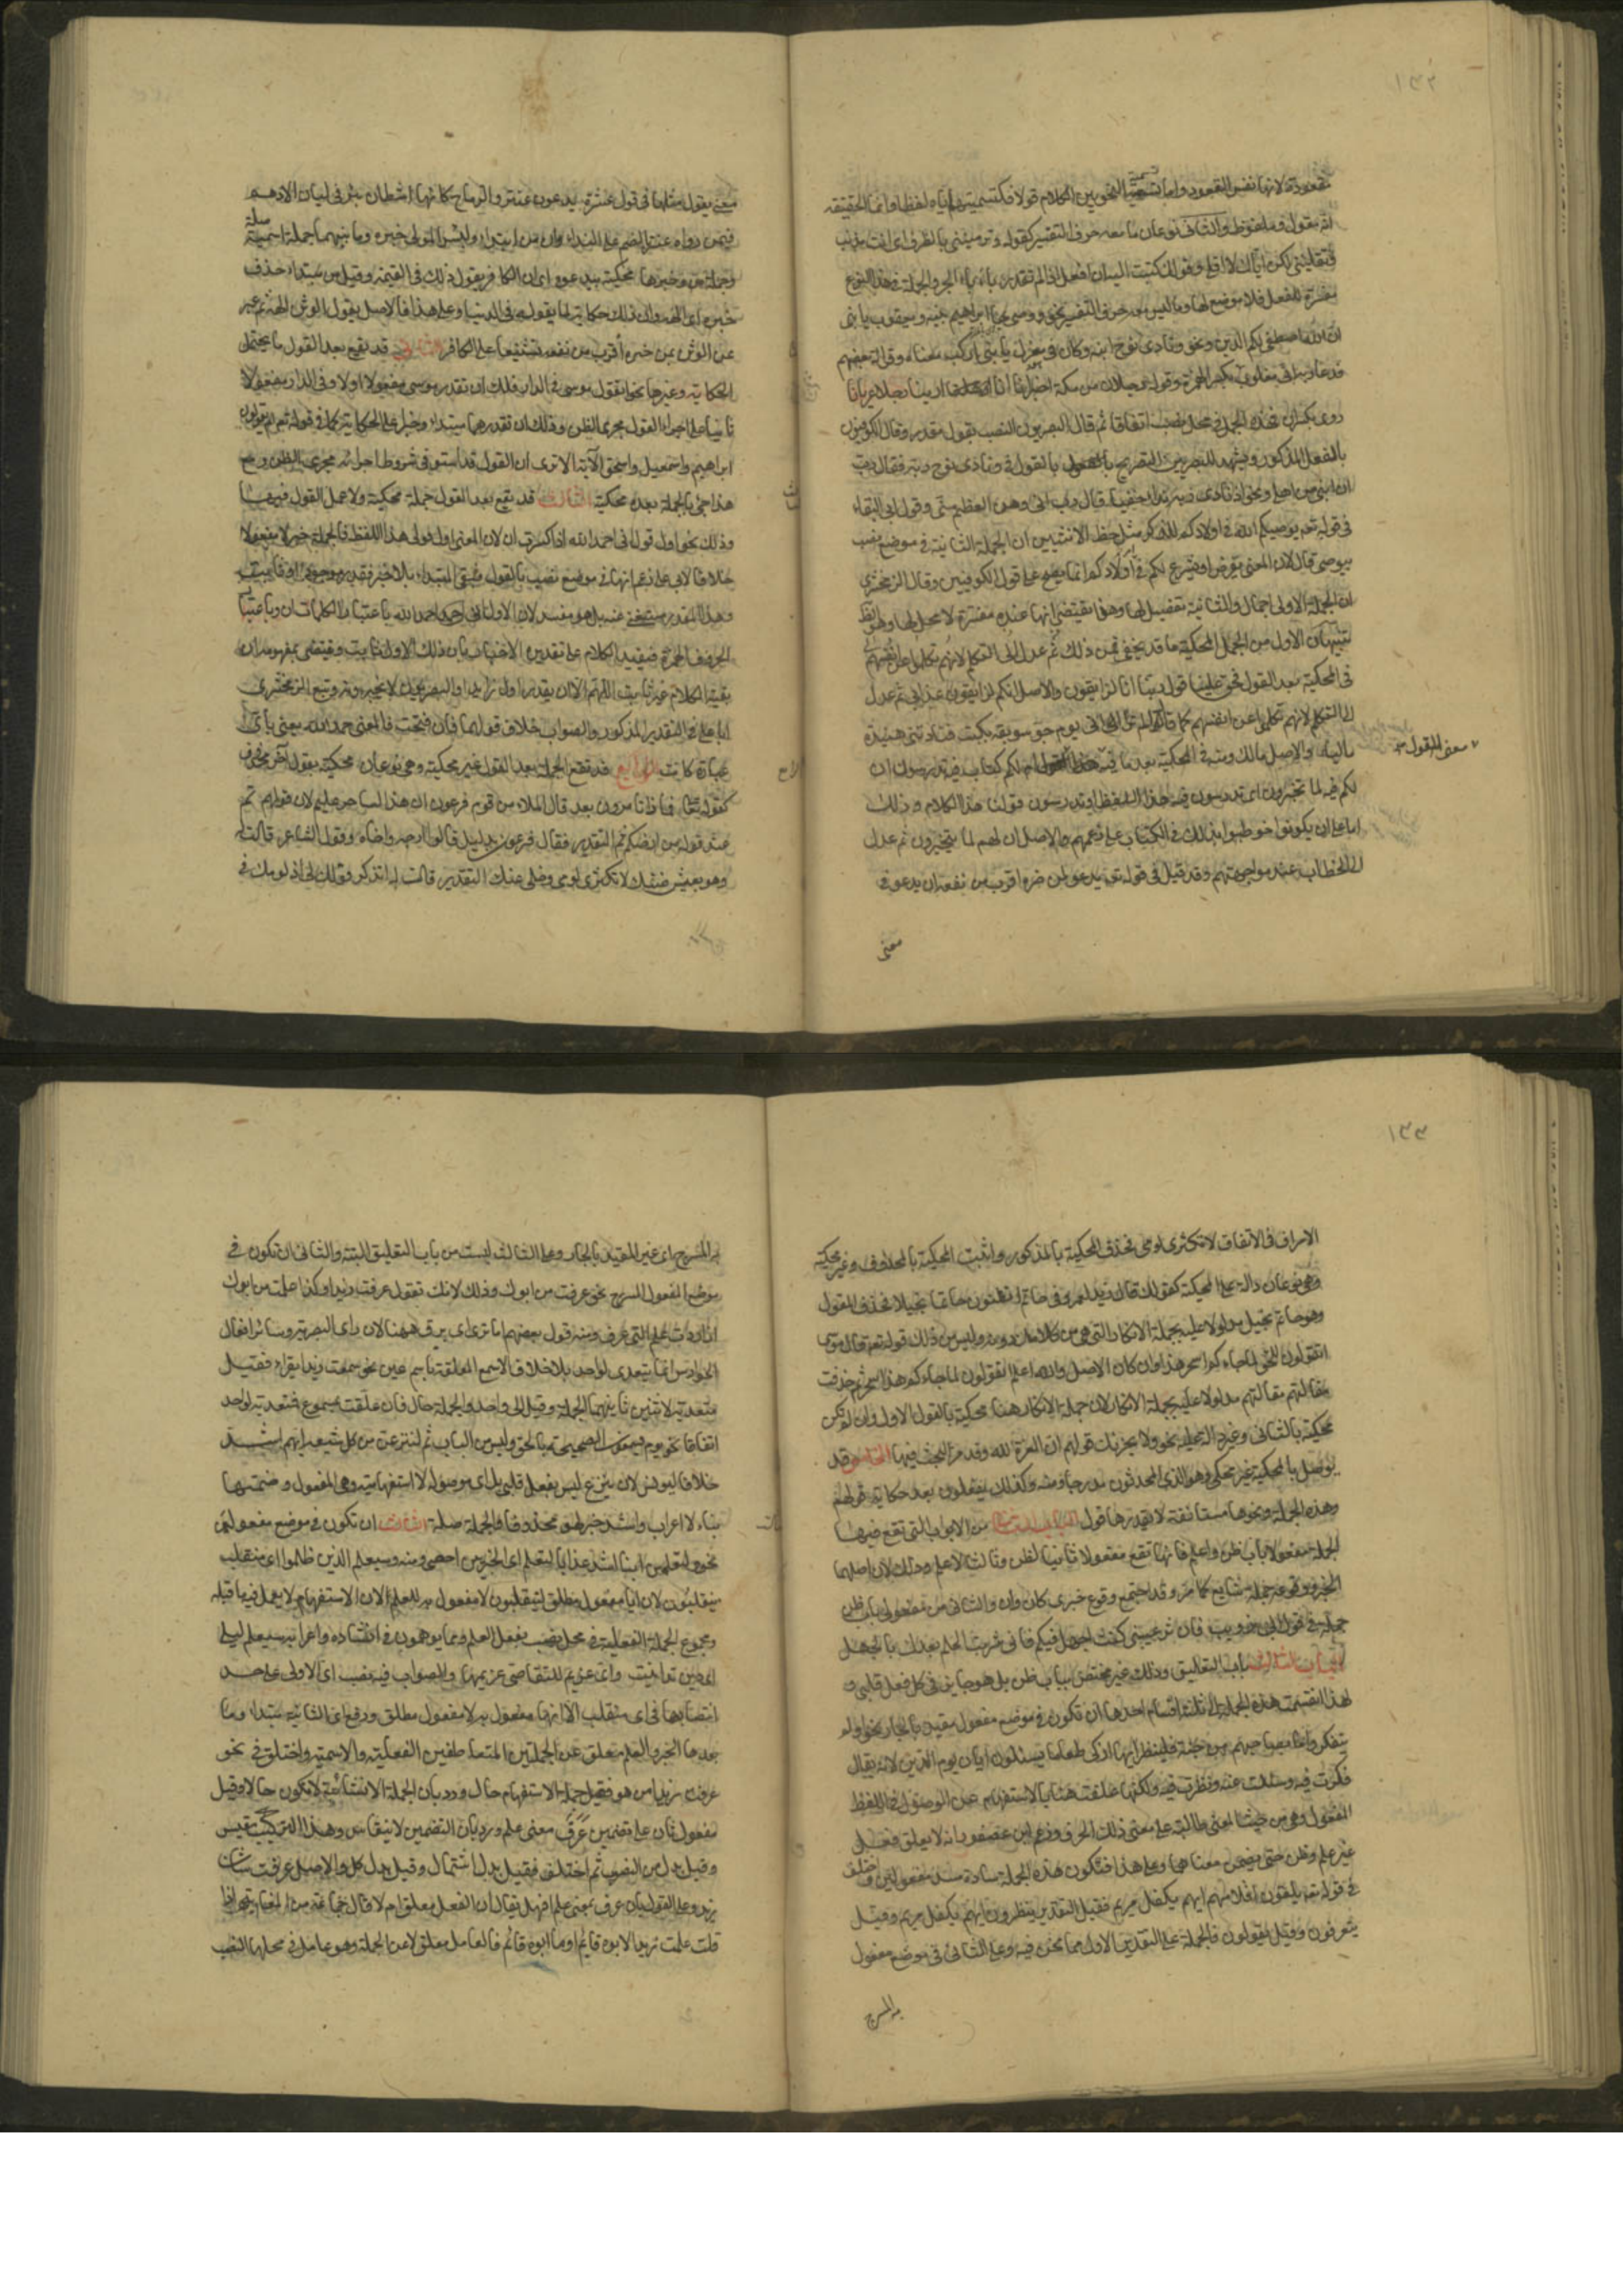 ١٣٢
القعود لانها نفس القعود واما تسمية النحويين الكلام قولا فكتسميتهم اياه لفظا وانما الحقيقة
انه مقول وملفوظ والثانى نوعان ما معه حرف التفسير كقوله وترميننى بالطرف اى انت مذنب
وتقليننى لكن اياك لا اقلى وقولك كتبت اليه ان افعل اذا لم تقدر باء الجر والجملة فى هذا النوع
مفسرة للفعل فلا موضع لها وما ليس معه حرف التفسير نحو ووصى بها ابراهيم بنيه ويعقوب يا بنى
ان الله اصطفى لكم الدين ونحو ونادى نوح ابنه وكان فى معزل يا بنى اركب معنا وقراءة بعضهم
فدعا ربه انى مغلوب بكسر الهمزة وقوله رجلان من مكة اخبرانا انا رأينا رجلا عريانا
روى بكسر ان فهذه الجمل فى محل نصب اتفاقا ثم قال البصريون النصب بقول مقدر وقال الكوفيون
بالفعل المذكور ويشهد للبصريين التصريح بالقول فى ونادى نوح ربه فقال رب
ان ابنى من اهلى ونحو اذ نادى ربه نداء خفيا قال رب انى وهن العظم منى وقول ابى البقاء
فى قوله تع يوصيكم الله فى اولادكم للذكر مثل حظ الانثيين ان الجملة الثانية فى موضع نصب
بيوصى قال لان المعنى يفرض او يشرع لكم فى اولادكم انما يصح على قول الكوفيين وقال الزمخشرى
ان الجملة الاولى اجمال والثانية تفصيل لها وهذا يقتضى انها عنده مفسرة لا محل لها وهو الظ
تنبيهات الاول من الجمل المحكية ما قد يخفى فمن ذلك ثم عدل الى التكلم لانهم تكلموا عن انفسهم
فى المحكية بعد القول فحق علينا قول ربنا انا لذايقون والاصل انكم لذايقون عذابى ثم عدل
الى التكلم لانهم تكلموا عن انفسهم كما قال الم تر انى يوم جو سويقة بكيت فنادتنى هنيدة
ماليا والاصل مالك ومنه فى المحكية بعد ما فيه معنى القول ام لكم كتاب فيه تدرسون ان
لكم فيه لما تخيرون اى تدرسون فيه هذا اللفظ او تدرسون قولنا هذا الكلام وذلك
اما على ان يكونوا خوطبوا بذلك فى الكتاب على زعمهم والاصل ان لهم لما يتخيرون ثم عدل
الى الخطاب عند مواجهتهم وقد قيل فى قوله تع يدعو لمن ضره اقرب من نفعه ان يدعو فى
معنى القول
معنى
معنى يقول مثلها فى قول عنترة يدعون عنتر والرماح كانها اشطان بئر فى لبان الادهم
فيمن رواه عنتر بالضم على النداء وان من مبتدأ ولبئس المولى خبره وما بينهما جملة اسمية صلة
وجملة من وخبرها محكية بيدعو اى ان الكافر يقول ذلك فى القيمة وقيل من مبتدا حذف
خبره اى الهه وان ذلك حكاية لما يقوله فى الدنيا وعلى هذا فالاصل يقول الوثن الهه ثم عبر
عن الوثن بمن ضره أقرب من نفعه تشنيعا على الكافر الثانى قد يقع بعد القول ما يحتمل
الحكاية وغيرها نحو اتقول موسى فى الدار فلك ان تقدر موسى مفعولا اولا وفى الدار مفعولا
ثانيا على اجراء القول مجرى الظن ولك ان تقدرهما مبتدا وخبرا على الحكاية كما فى قوله تع ام تقولون
ابراهيم واسمعيل واسحق الآية الا ترى ان القول قد استوفى شروط اجرائه مجرى الظن ومع
هذا جئ بالجملة بعده محكية الثالث قد يقع بعد القول جملة محكية ولا عمل للقول فيها
وذلك نحو اول قولى انى احمد الله اذا كسرت ان لان المعنى اول قولى هذا اللفظ فالجملة خبر لا مفعول
خلافا لابى على زعم انها فى موضع نصب بالقول فبقى المبتداء بلا خبر فقدر موجود او ثابت
وهذا المقدر يستغنى عنه بل هو مفسد لان اول قولى انى احمد الله باعتبار الكلمات ان وباعتبار
الحروف الهمزة فيفيد الكلام على تقديره الاخبار بان ذلك الاول ثابت ويقتضى بمفهومه ان
بقية الكلام غير ثابت اللهم الا ان يقدر اول زايدا والبصريون لا يجيزونه وتبع الزمخشرى
ابا على فى التقدير المذكور والصواب خلاف قولهما فان فتحت فالمعنى حمد الله يعنى بأى
عبارة كانت الرابع قد تقع الجملة بعد القول غير محكية وهى نوعان محكية بقول آخر محذوف
كقوله تع فماذا تامرون بعد قال الملاء من قوم فرعون ان هذا لساحر عليم لان قولهم تم
عند قوله من ارضكم ثم التقدير فقال فرعون بدليل قالوا ارجه واخاه وقول الشاعر قالت له
وهو بعيش ضنك لا تكثرى لومى وخلى عنك التقدير قالت له اتذكر قولك لى اذ لومك فى
١٣٣
الاسراف فى الانفاق لا تكثرى لومى فحذف المحكية بالمذكور واثبت المحكية بالمحذوف وغير محكية
وهى نوعان دالة على المحكية كقولك قال زيد لعمرو فى حاتم اتظنون حاتما بخيلا فحذف المقول
وهو حاتم بخيل مدلولا عليه بجملة الانكار التى هى من كلامك دونه وليس من ذلك قوله تع قال موسى
اتقولون للحق لما جاءكم اسحر هذا وان كان الاصل والله اعلم اتقولون للحق لما جاءكم هذا سحر ثم حذفت
مقالتهم مدلولا عليها بجملة الانكار لان جملة الانكار هنا محكية بالقول الاول وان لم تكن
محكية بالثانى وغير دالة عليه نحو ولا يحزنك قولهم ان العزة لله وقد مر البحث فيها الخامس قد
يوصل بالمحكية غير محكى وهو الذى يسميه المحدثون مدرجا ومنه وكذلك يفعلون بعد حكاية قولها
وهذه الجملة ونحوها مستانفة لا يقدر لها قول الباب الثانى من الابواب التى تقع فيها
الجملة مفعولا باب ظن واعلم فانها تقع مفعولا ثانيا لظن وثالثا لاعلم وذلك لان اصلهما
الخبر ووقوعه جملة شايع كما مر وقد اجتمع وقوع خبرى كان وان والثانى من مفعولى باب ظن
جملة فى قول ابى ذويب فان تزعمينى كنت اجهل فيكم فانى شريت الحلم بعدك بالجهل
الباب الثالث باب التعليق وذلك غير مختص بباب ظن بل هو جايز فى كل فعل قلبى و
لهذا انقسمت هذه الجملة الى ثلثة اقسام احدها ان تكون فى موضع مفعول مقيد بالجار نحو اولم
يتفكروا ما بصاحبهم من جنة فلينظر ايها ازكى طعاما يسئلون ايان يوم الدين لانه يقال
فكرت فيه وسئلت عنه ونظرت فيه ولكنها علقت هنا بالاستفهام عن الوصول فى اللفظ
المفعول وهى من حيث المعنى طالبة على معنى ذلك الحرف وزعم ابن عصفور انه لا يعلق فعل
غير علم وظن حتى يضمن معناهما وعلى هذا فتكون هذه الجملة سادة مسد مفعولين واختلف
فى قوله تع يلقون اقلامهم ايهم يكفل مريم فقيل التقدير ينظرون ايهم يكفل مريم وقيل
يتعرفون وقيل يقولون فالجملة على التقدير الاول مما نحن فيه وعلى الثانى فى موضع مفعول
به المسرح
به المسرح اى غير المقيد بالجار وعلى الثالث ليست من باب التعليق البتة والثانى ان تكون فى
موضع المفعول المسرح نحو عرفت من ابوك وذلك لانك تقول عرفت زيدا وكذا علمت من ابوك
اذا اردت علم التى بمعنى عرف ومنه قول بعضهم اما ترى اى برق ههنا لان راى البصرية وسائر افعال
الحواس انما يتعدى لواحد بلا خلاف الا سمع المعلقة باسم عين نحو سمعت زيدا يقراء فقيل
متعدية لاثنين ثانيهما الجملة وقيل الى واحد والجملة حال فان علقت بمسموع فمتعدية لواحد
اتفاقا نحو يوم يسمعون الصيحة بالحق وليس من الباب ثم لننزعن من كل شيعة ايهم اشد
خلافا ليونس لان ننزع ليس بفعل قلبى بل اى موصولة لا استفهامية وهى المفعول وضمتها
بناء لا اعراب واشد خبر لهو محذوفا والجملة صلة الثالث ان تكون فى موضع مفعولين
نحو ولتعلمن اينا اشد عذابا لنعلم اى الحزبين احصى ومنه وسيعلم الذين ظلموا اى منقلب
ينقلبون لان ايا مفعول مطلق لينقلبون لا مفعول به ليعلم لان الاستفهام لا يعمل فيه ما قبله
ومجموع الجملة الفعلية فى محل نصب بفعل العلم ومما يوهمون فى انشاده واعرابه سيعلم ليلى
اى دين تداينت واى غريم للتقاضى غريمها والصواب فيه نصب اى الاولى على حد
انتصابها فى اى منقلب الا انها مفعول به لا مفعول مطلق ورفع اى الثانية مبتدا وما
بعدها الخبر والعلم معلق عن الجملتين المتعاطفتين الفعلية والاسمية واختلف فى نحو
عرفت زيدا من هو فقيل جملة الاستفهام حال ورد بان الجملة الانشائية لا تكون حالا وقيل
مفعول ثان على تضمين عرف معنى علم ورد بان التضمين لا ينقاس وهذا التركيب مقيس
وقيل بدل من المنصوب ثم اختلف فقيل بدل اشتمال وقيل بدل كل والاصل عرفت شان
زيد وعلى القول بان عرف بمعنى علم فهل يقال ان الفعل معلق ام لا قال جماعة من المغاربة اذا
قلت علمت زيدا لابوه قائم او ما ابوه قائم فالعامل معلق عن الجملة وهو عامل فى محلها النصب